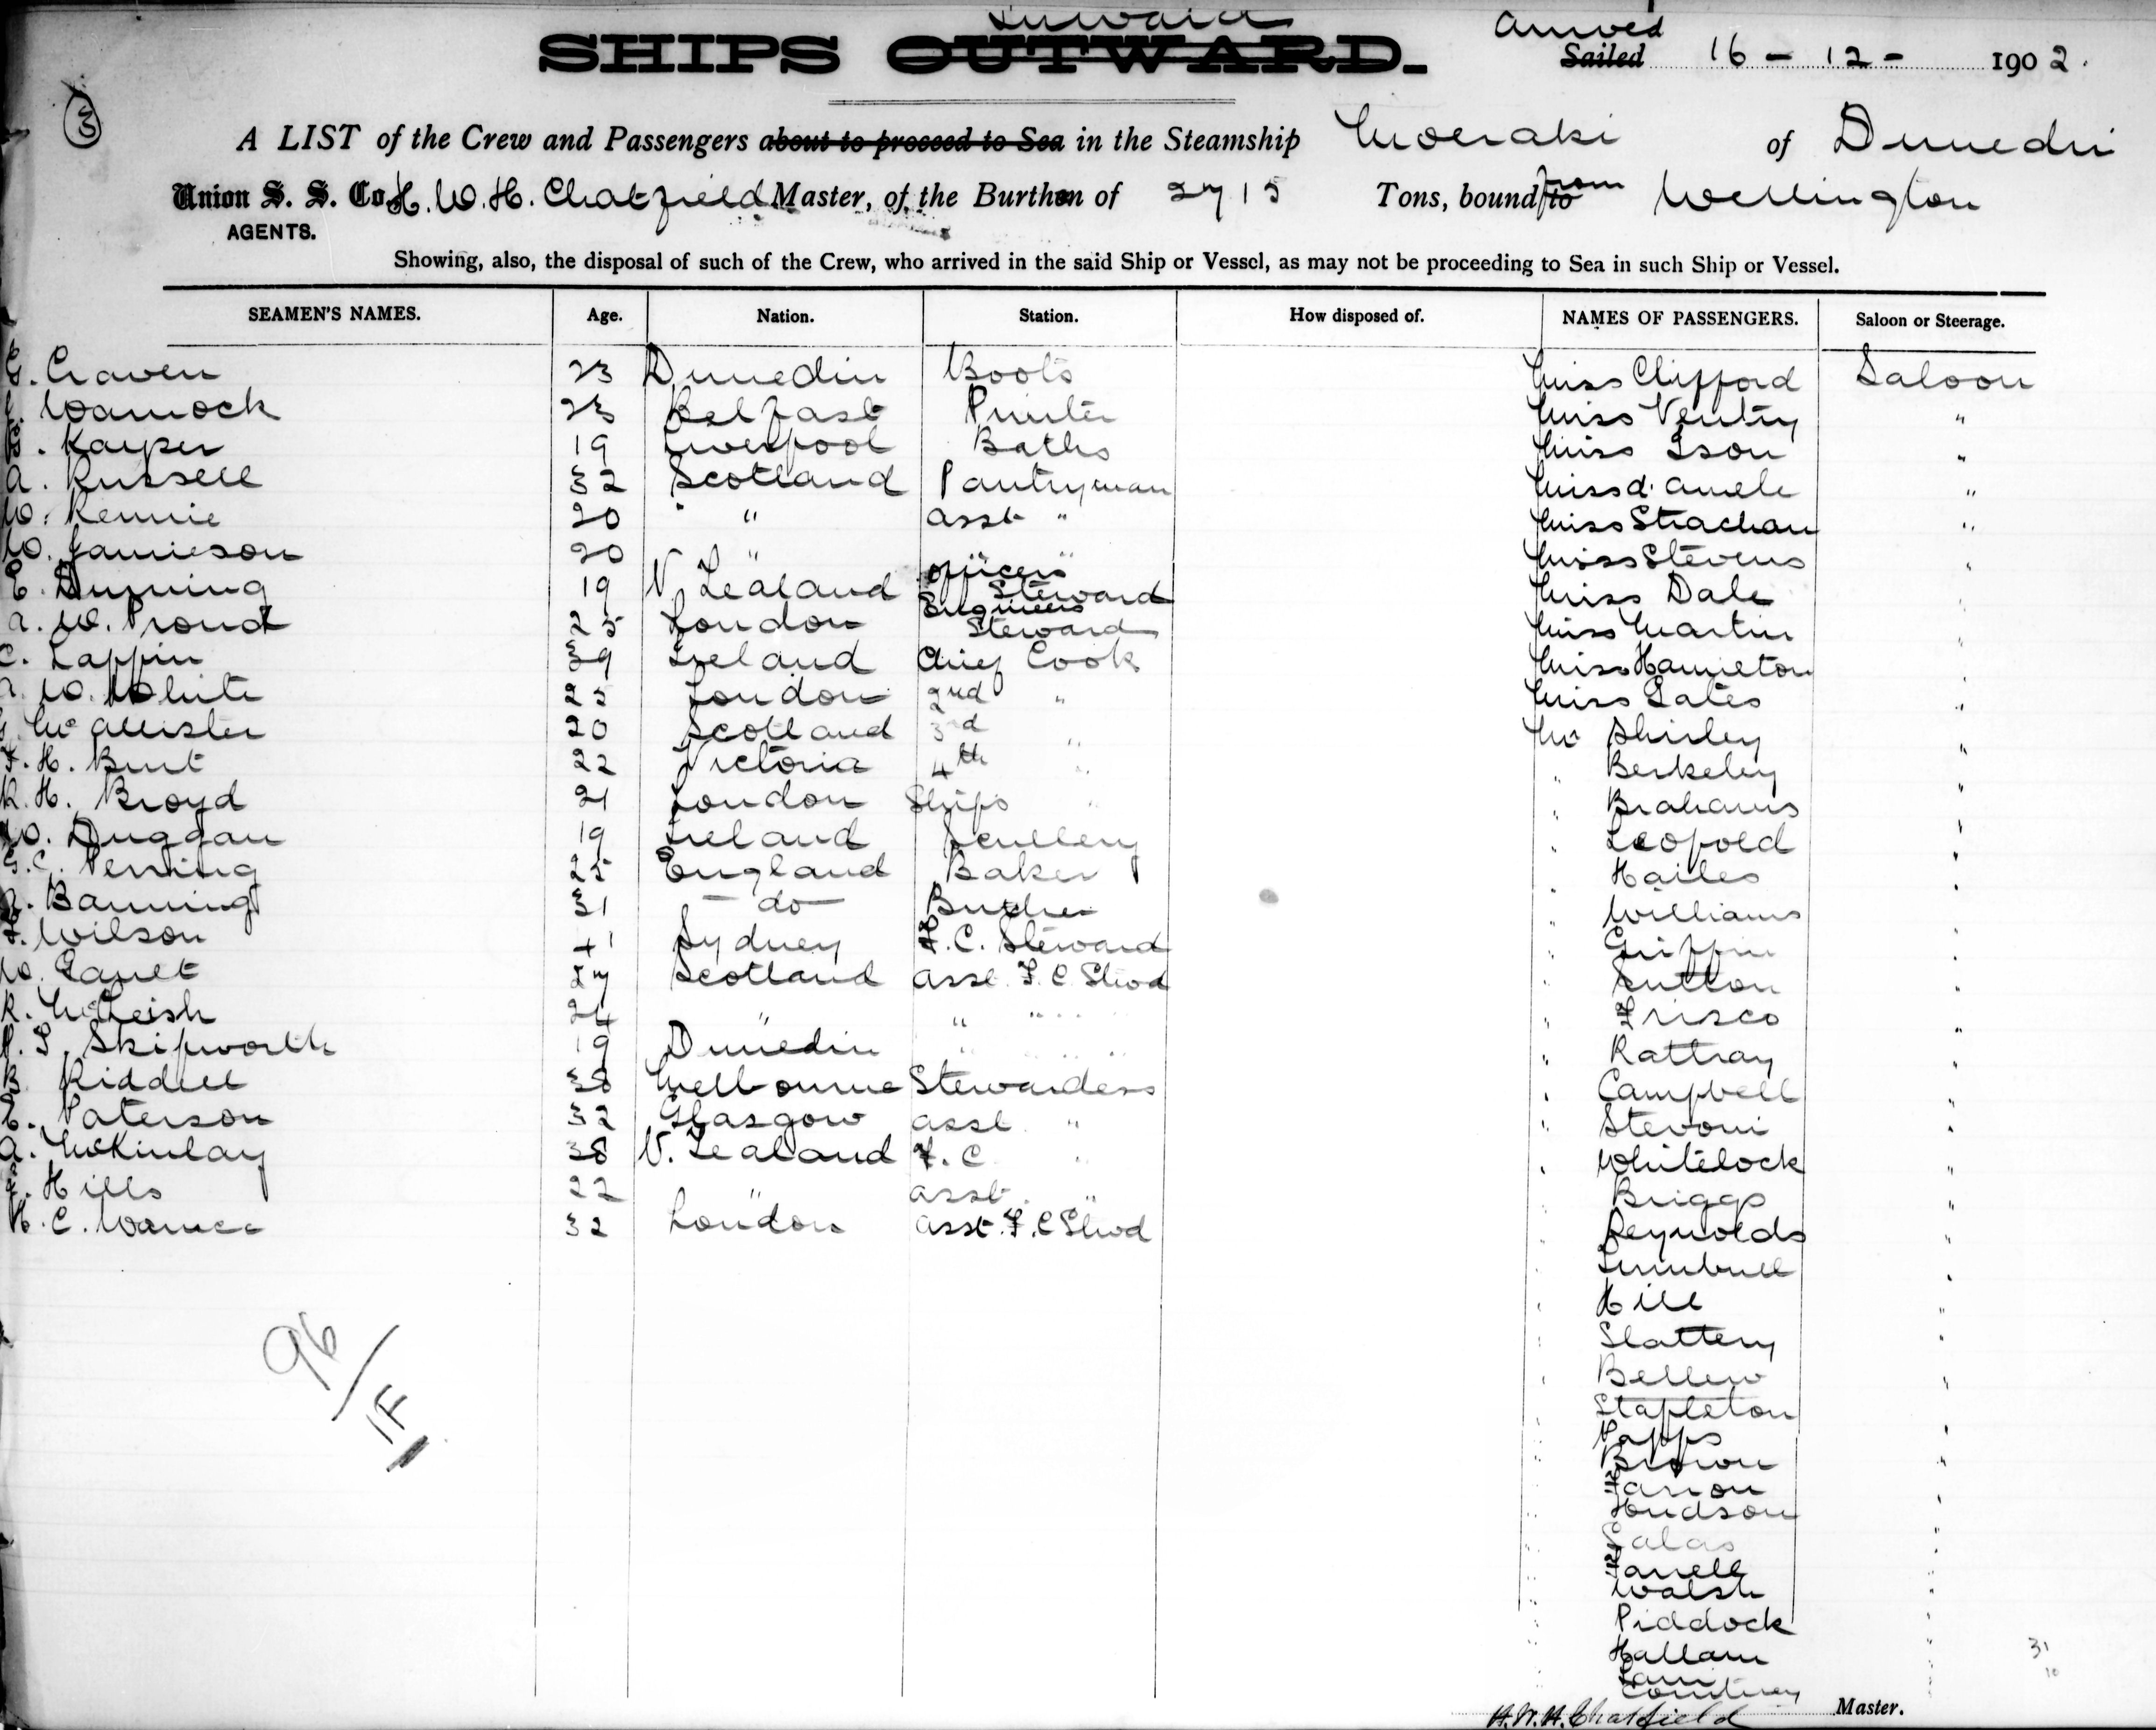 Inward
SHIPS OUTWARD.
Arrived
Sailed 16 - 12 - 1902.
3
A LIST of the Crew and Passengers about to proceed to Sea in the Steamship Moeraki of Dunedin
Union S. S. Co. H. W. H. Chatfield Master, of the Burthen of 2715 Tons, bound to from Wellington
AGENTS.
Showing, also, the disposal of such of the Crew, who arrived in the said Ship or Vessel, as may not be proceeding to Sea in such Ship or Vessel.
SEAMEN'S NAMES. Age. Nation. Station. How disposed of. NAMES OF PASSENGERS. Saloon or Steerage.
G. Craven 23 Dunedin Boots Miss Clifford Saloon
Warnock 23 Belfast Printer Miss Ventry "
Karper 19 Liverpool Baths Miss Ison "
A. Russell 32 Scotland Pantryman Miss "
W. Rennie 20 " " asst " Miss Strachan "
W. Jamieson 20 " " Miss Stevens "
E. Dunning 19 N. Zealand Officers Steward Miss Dale
A. W. Proud 25 London Engineers Steward Miss Martin "
C. Lappin 39 Ireland Chief Cook Miss Hamilton "
A. W. White 25 London 2nd " Miss Bates "
McAllister 20 Scotland 3rd " Mr Shirley "
F. H. Burt 22 Victoria 4th " " Berkeley "
R. H. Broyd 21 London Ships " " Brahams "
W. Duggan 19 Ireland Scullery " Leopold "
G. C. Perring 25 England Baker " Hailes "
Banning 31 - do - Butcher " Williams "
F. Wilson 41 Sydney F. C. Steward " Griffin "
W. 27 Scotland asst F. C. Stwd " Sutton "
R. McLeish 24 " " " " Frisco "
Skipworth 19 Dunedin " " " " Rattray "
B. Riddell 38 Melbourne Stewardess " Campbell "
E. Paterson 32 Glasgow asst " " Stevoni "
A. McKinlay 38 N. Zealand F. C. " " Whitelock "
Hills 22 " asst. " " Briggs "
H. C. Warner 32 London asst. F. C Stwd " Reynolds "
" Turnbull "
" Hill "
" Slattery "
" Bellew "
" Stapleton "
" Papps "
" Brown "
" "
" Hudson "
" "
" Farrell "
" Walsh "
" Piddock "
" Hallam "
" "
" Courtney "
96/1F
31
10
H. W. H. Chatfield Master.